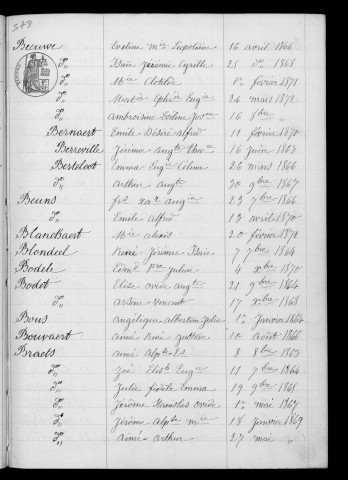 578
Beeuwe Eveline Mie Léopoldine 16 avril 1866
d° Bsie Jérémie Cyrille 28 d° 1868
d° Mie Clotilde 1er février 1871
d° Maria Ephre Eugie 26 mars 1872
d° Ambroisine Eveline Josne 16 8bre "
Bernaert Emile Désiré Alfred 11 février 1870
Berreville Jérôme Augte Théore 16 juin 1863
Berteloot Emma Eugie Célina 26 mars 1866
d° Arthur Augte 30 9bre 1867
Beuns Fs Xer Augin 23 7bre 1866
d° Emile Alfred 13 avril 1870
Blanckaert Mie Alexis 20 février 1871
Blondeel René Jérémie Bsie 7 7bre 1864
Bodele Pre Julien 4 Xbre 1870
Bodot Elise Ovide Augte 21 9bre 1864
d° Arsène Vincent 17 Xbre 1868
Bous Angélique Albertine Julie 1er janvier 1864
Bouvaert Aimé René Gustave 1er août 1866
Braels Aimé Alpse Ls 8 8bre 1863
d° Zoé Elisth Eugie 11 7bre 1864
d° Julie Fidèle Emma 19 9bre 1865
d° Jérôme Stanislas Ovide 1er mai 1867
d° Jérôme Alpse Mie 18 janvier 1869
d° Aimé Arthur 27 mai "